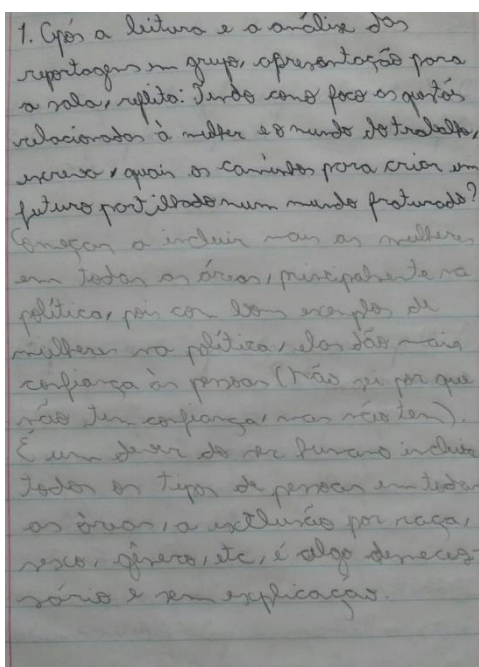 1. Após a leitura e a análise das
reportagens em grupo, apresentação para
a sala, reflita: Tendo como foco as questões
relacionadas à mulher e o mundo do trabalho,
escreva, quais os caminhos para criar um
futuro partilhado num mundo fraturado?
Começar a incluir mais as mulheres
em todas as áreas, principalmente na
política, pois com bons exemplos de
mulheres na política, elas dão mais
confiança às pessoas (Não sei por que
não tem confiança, mas não tem).
É um dever do ser humano incluir
todos os tipos de pessoas em todas
as áreas, a exclusão por raça,
sexo, gênero, etc, é algo desneces-
sário e sem explicação.